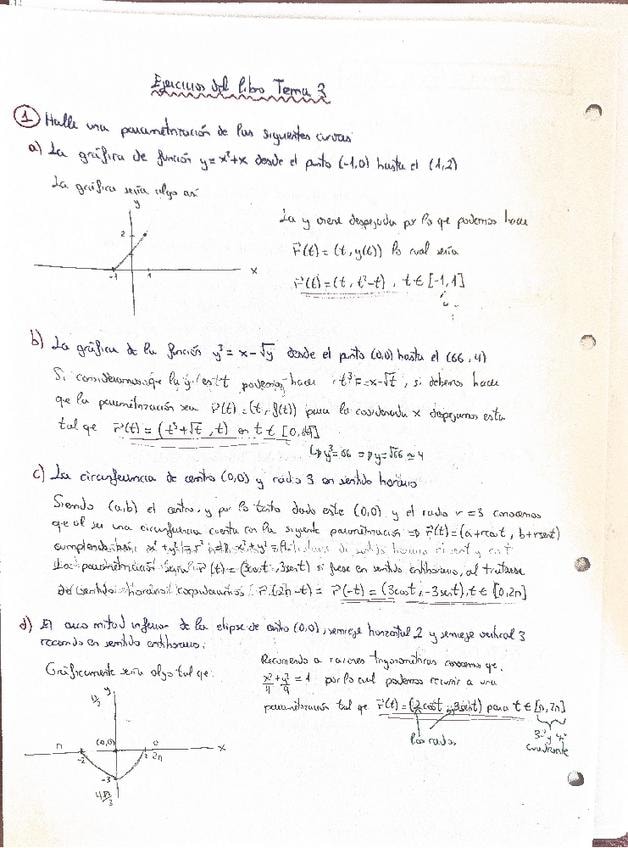 Ejercicios del libro Tema 3
① Halle una parametrización de las siguientes curvas
a) La gráfica de función y = x² + x desde el punto (-1,0) hasta el (1,2)
La gráfica sería algo así
y
2
-1
1
x
La y viene despejada por lo que podemos hacer
r⃗(t) = (t, y(t)) lo cual sería
r⃗(t) = (t, t²-t), t ∈ [-1,1]
b) La gráfica de la función y³ = x - √y desde el punto (0,0) hasta el (66,4)
Si consideramos que la y es t podemos hacer t³ = x - √t, si debemos hacer
que la parametrización sea r⃗(t) = (t, f(t)) para la coordenada x despejamos esta
tal que r⃗(t) = (t³ + √t, t) en t ∈ [0,
↳ y³ = 66 ⇒ y = √66 ≃ 4
c) La circunferencia de centro (0,0) y radio 3 en sentido horario
Siendo (a,b) el centro, y por lo tanto dado este (0,0) y el radio r = 3 conocemos
que al ser una circunferencia cuenta con la siguiente parametrización ⇒ r⃗(t) = (a + rcost, b + rsent)
La parametrización sería r⃗(t) = (3cost, 3sent) si fuese en sentido antihorario, al tratarse
de sentido horario r⃗(2π - t) = r⃗(-t) = (3cost, -3sent), t ∈ [0,2π]
d) El arco mitad inferior de la elipse de centro (0,0), semieje horizontal 2 y semieje vertical 3
recorrido en sentido antihorario.
Gráficamente sería algo tal que:
y
π
(0,0)
0
x
-2
2
2π
-3
Recurriendo a razones trigonométricas conocemos que
x²/4 + y²/9 = 1 por lo cual podemos recurrir a una
parametrización tal que r⃗(t) = (2cost, 3sent) para t ∈ [π,2π]
los radios
3er y 4º
cuadrante